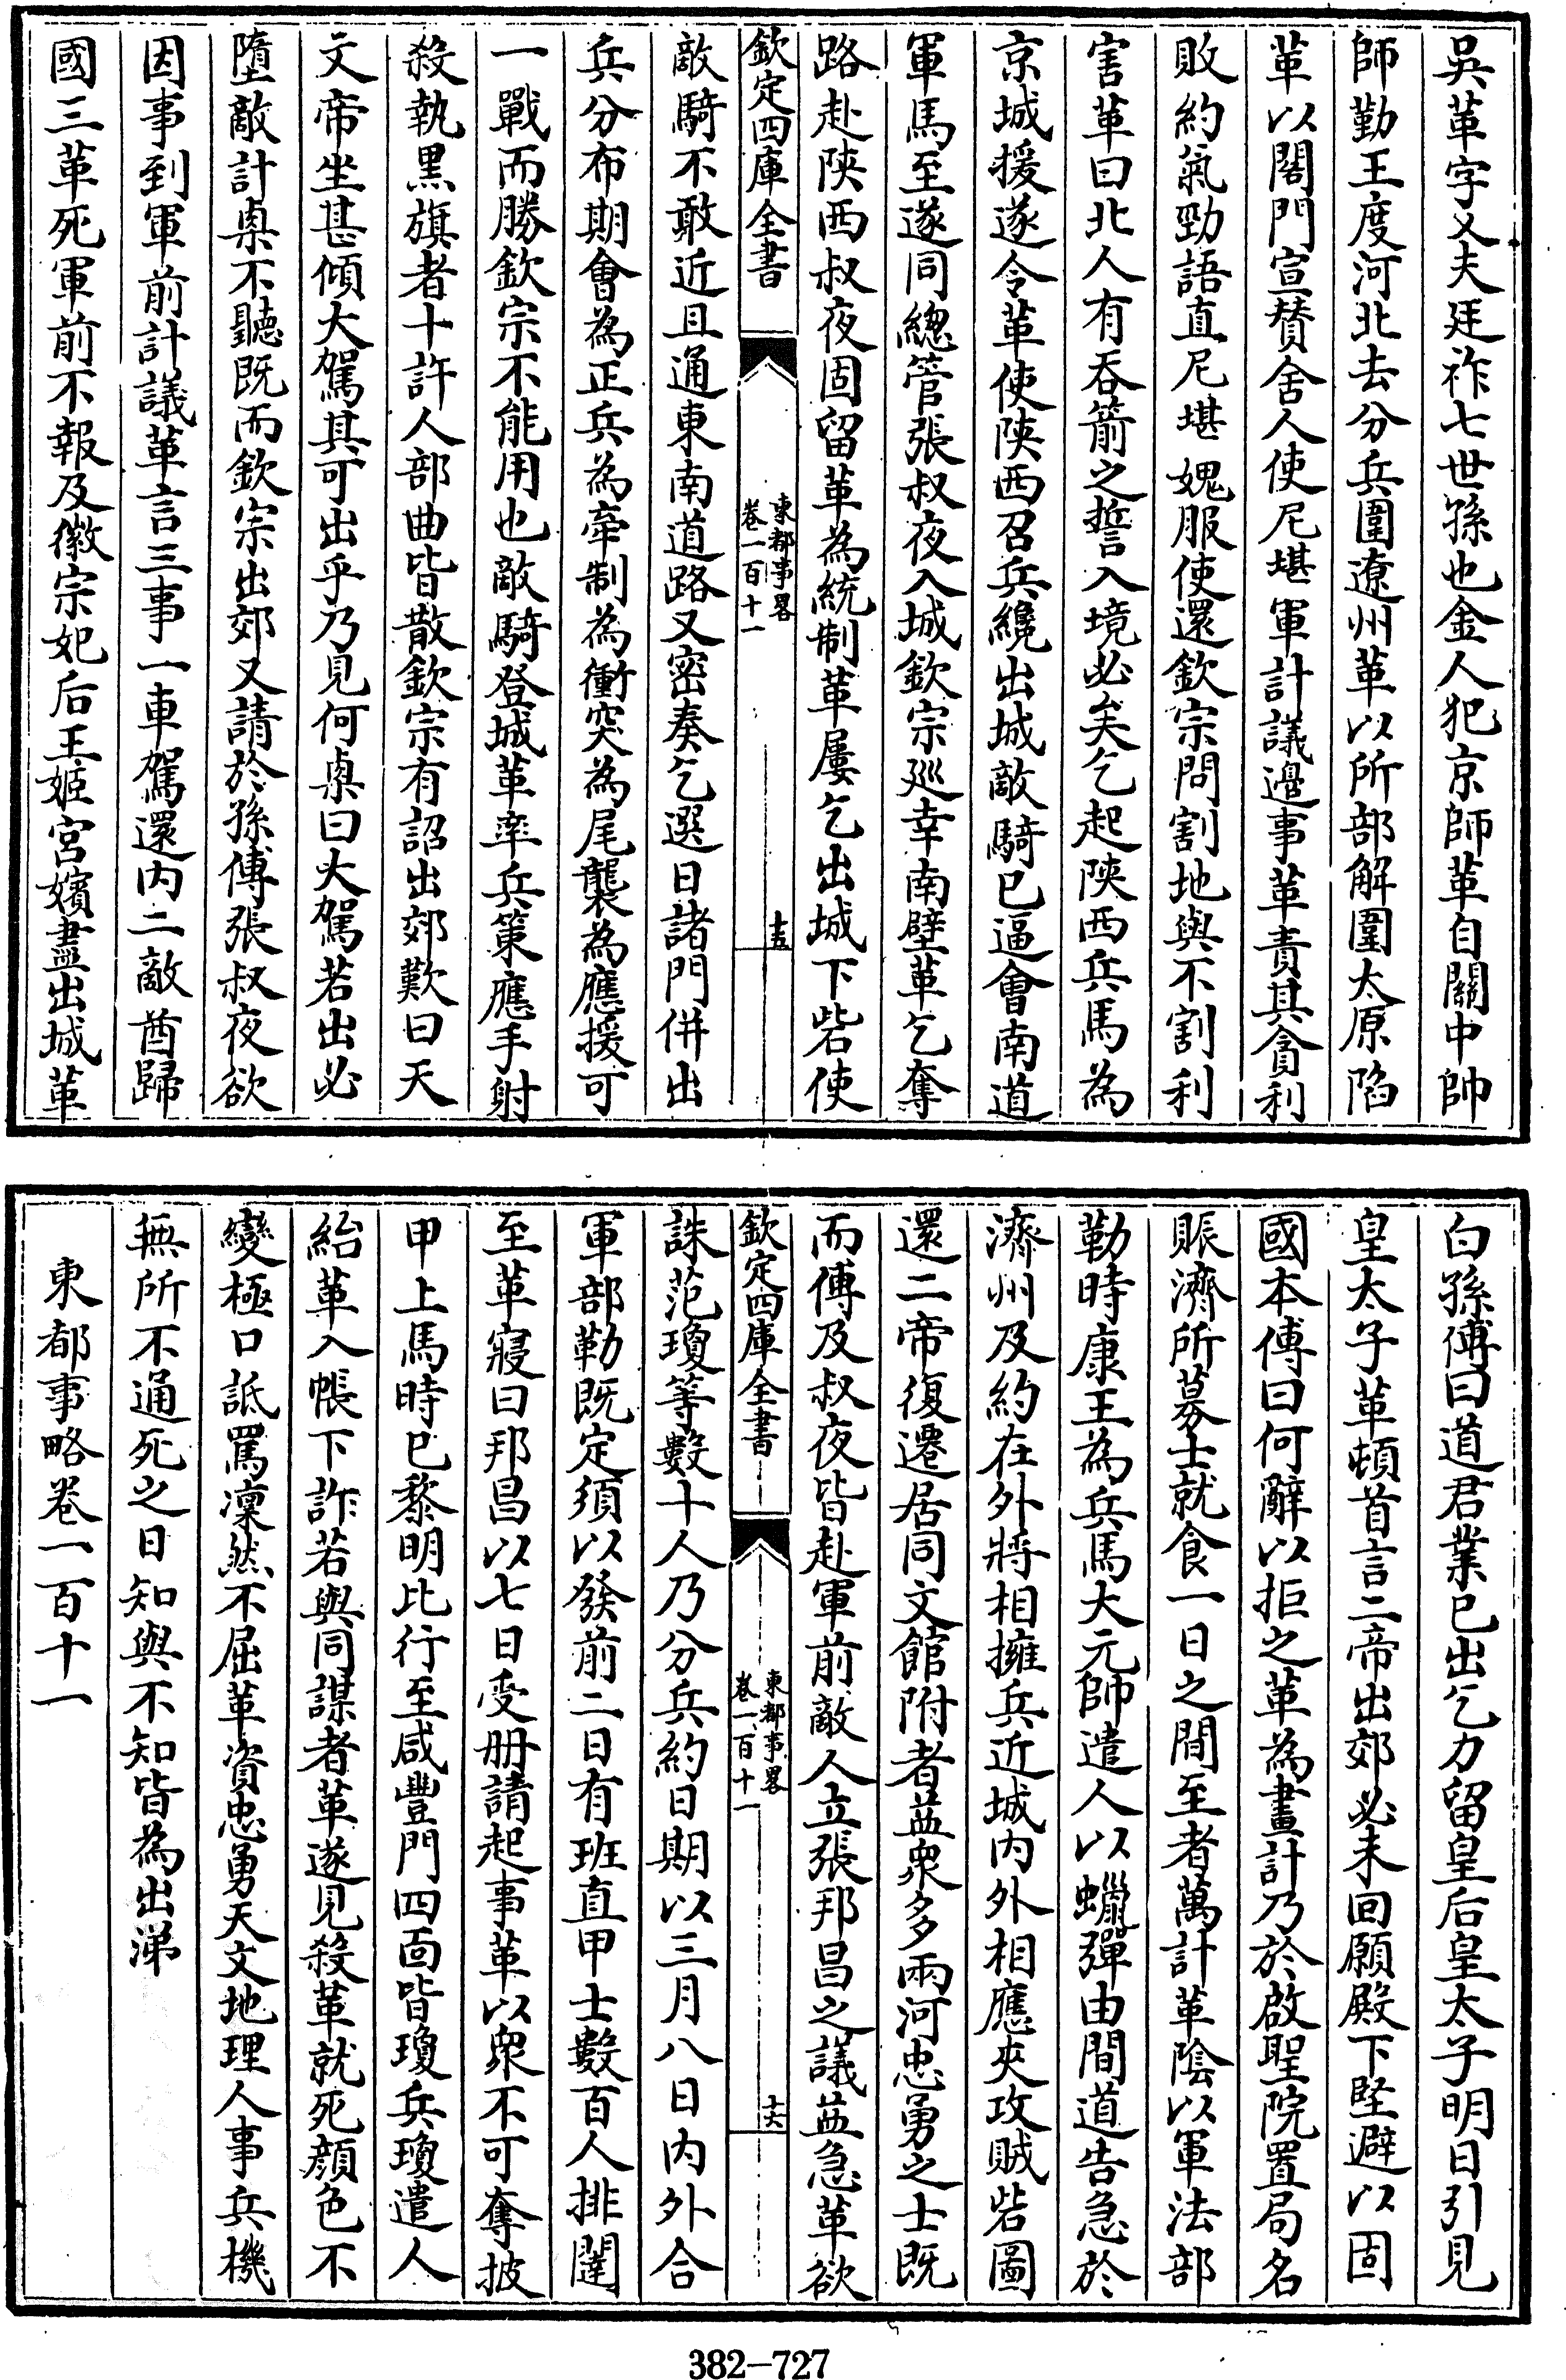 吳革字义夫廷祚七世孫也金人犯京師革自關中帥
師勤王度河北去分兵圍遼州革以所部解圍太原陷
革以閤門宣賛舍人使尼堪軍計議邊事革責其貪利
敗約氣勁語直尼堪媿服使還欽宗問割地與不割利
害革曰北人有吞箭之誓入境必矣乞起陜西兵馬為
京城援遂令革使陜西召兵纔出城敵騎已逼會南道
軍馬至遂同總管張叔夜入城欽宗廵幸南壁革乞奪
路赴陜西叔夜固留革為統制革屢乞出城下砦使
欽定四庫全書
東都事畧
卷一百十一
十五
敵騎不敢近且通東南道路又密奏乞選日諸門併出
兵分布期會為正兵為牽制為衝突為尾襲為應援可
一戰而勝欽宗不能用也敵騎登城革率兵策應手射
殺執黑旗者十許人部曲皆散欽宗有詔出郊歎曰天
文帝坐甚傾大駕其可出乎乃見何㮚曰大駕若出必
墮敵計㮚不聽既而欽宗出郊又請於孫傅張叔夜欲
因事到軍前計議革言三事一車駕還内二敵酋歸
國三革死軍前不報及徽宗妃后王姬宮嬪盡出城革
白孫傅曰道君業已出乞力留皇后皇太子明日引見
皇太子革頓首言二帝出郊必未回願殿下堅避以固
國本傅曰何辭以拒之革為畫計乃於啟聖院置局名
賑濟所募士就食一日之間至者萬計革陰以軍法部
勒時康王為兵馬大元帥遣人以蠟彈由間道告急於
濟州及約在外將相擁兵近城内外相應夾攻賊砦圖
還二帝復遷居同文館附者益衆多兩河忠勇之士既
而傅及叔夜皆赴軍前敵人立張邦昌之議益急革欲
欽定四庫全書
東都事畧
卷一百十一
十六
誅范瓊等數十人乃分兵約日期以三月八日内外合
軍部勒既定須以發前二日有班直甲士數百人排闥
至革寢曰邦昌以七日受册請起事革以衆不可奪披
甲上馬時已黎明比行至咸豐門四靣皆瓊兵瓊遣人
紿革入帳下詐若與同謀者革遂見殺革就死顔色不
變極口詆罵凜然不屈革資忠勇天文地理人事兵機
無所不通死之日知與不知皆為出涕
東都事略卷一百十一
382-727